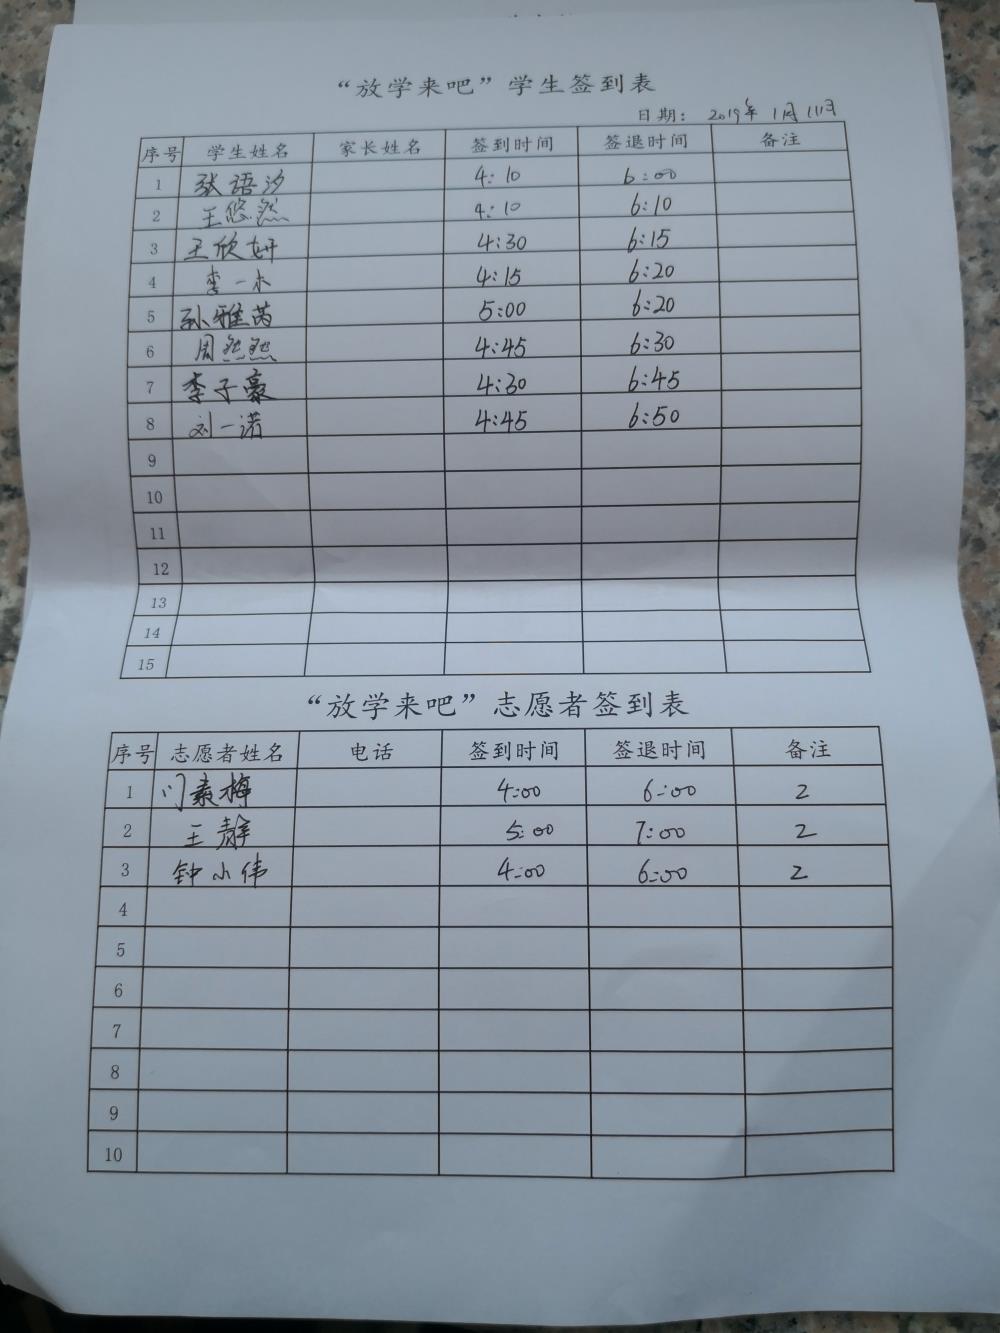 “放学来吧”学生签到表
日期： 2019年1月11日
序号 学生姓名 家长姓名 签到时间 签退时间 备注
1 张语汐 4:10 6:00
2 王悠然 4:10 6:10
3 王欣妍 4:30 6:15
4 李一木 4:15 6:20
5 孙雅芮 5:00 6:20
6 周然然 4:45 6:30
7 李子豪 4:30 6:45
8 刘一诺 4:45 6:50
9
10
11
12
13
14
15
“放学来吧”志愿者签到表
序号 志愿者姓名 电话 签到时间 签退时间 备注
1 门素梅 4:00 6:00 2
2 王静 5:00 7:00 2
3 钟小伟 4:00 6:00 2
4
5
6
7
8
9
10